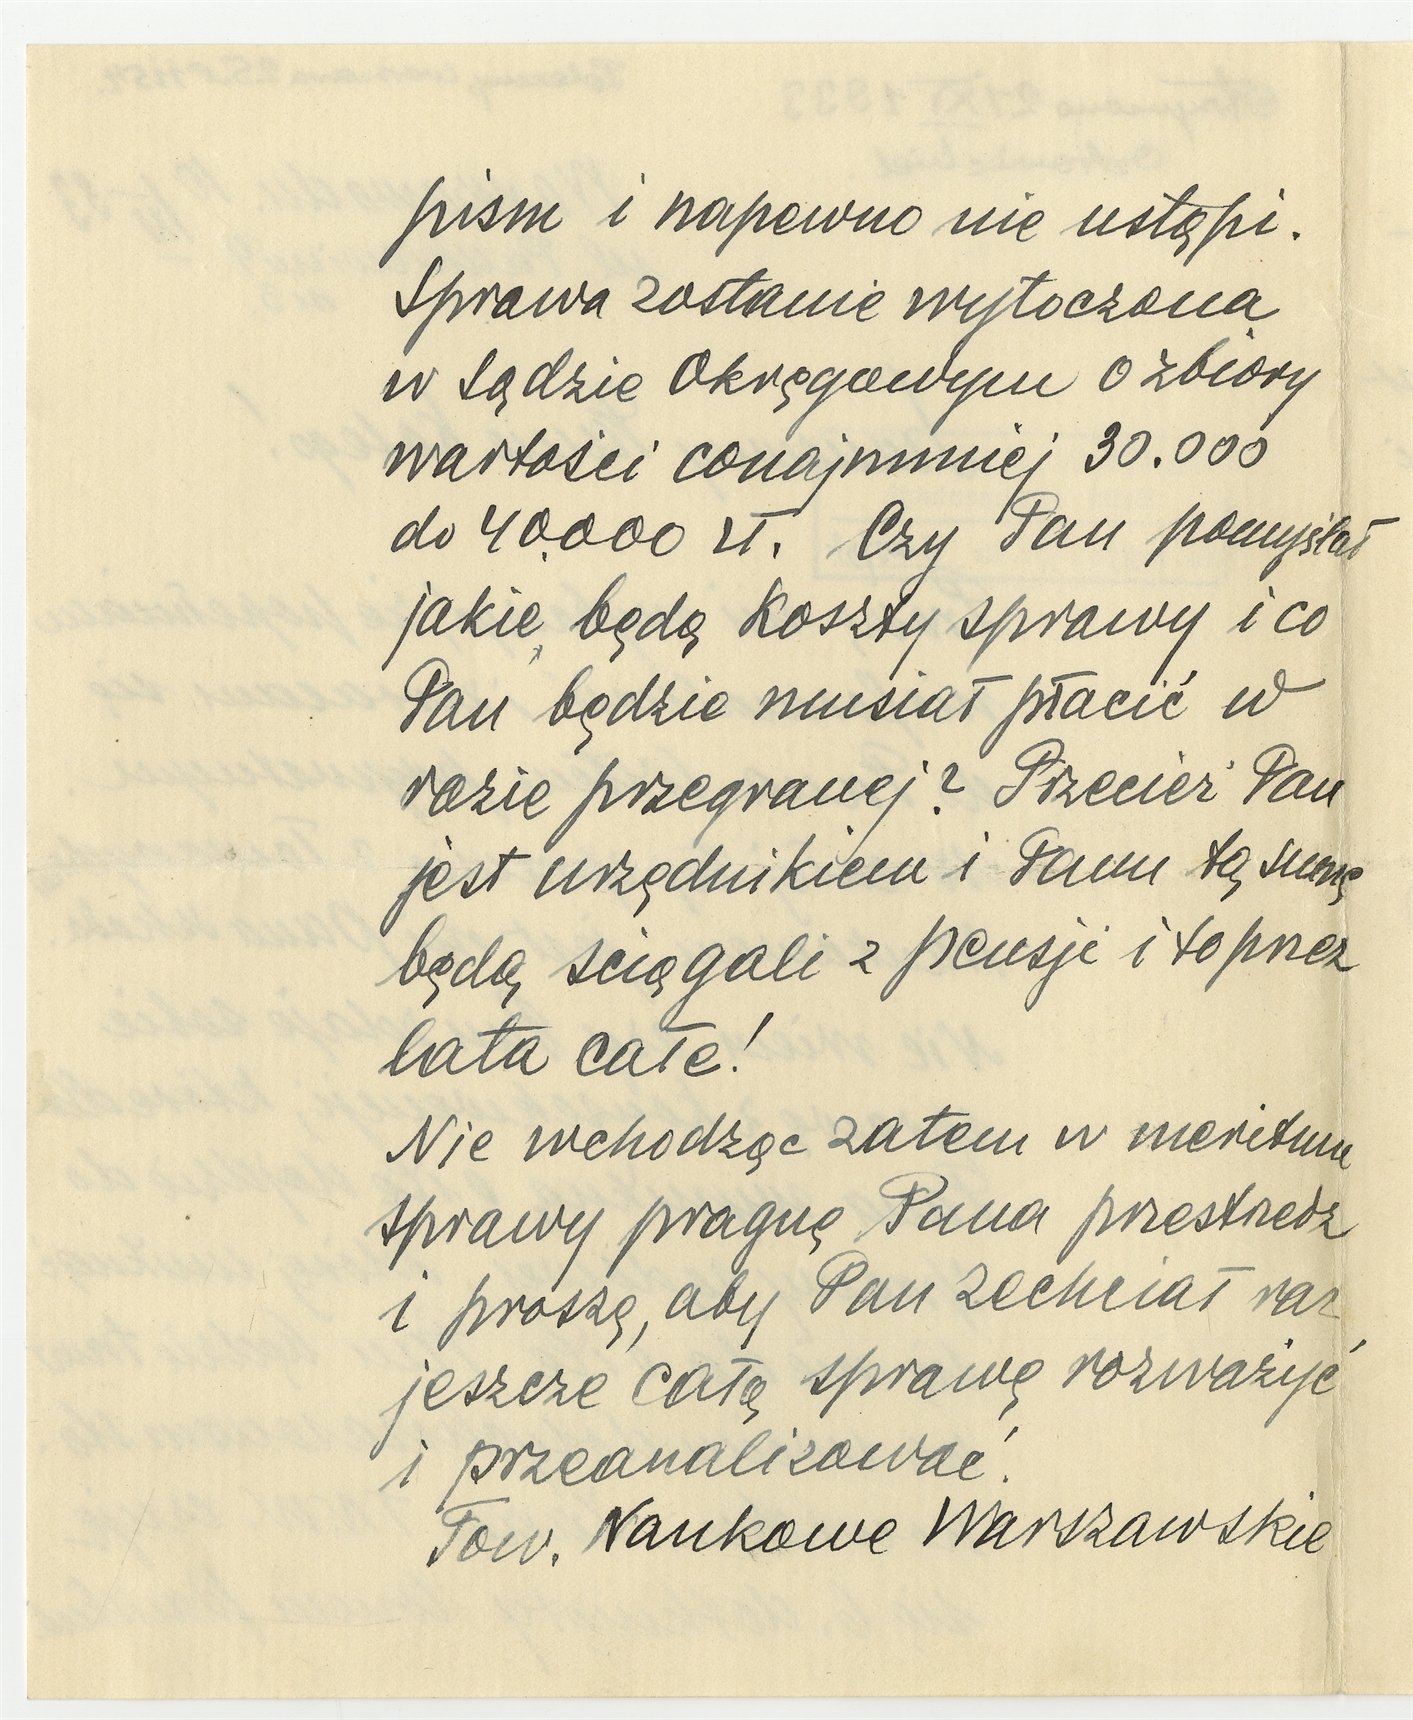 pism i napewno nie ustąpi.
Sprawa zostanie wytoczona
w Sądzie Okręgowym o zbiory
wartości conajmniej 30.000
do 40.000 zł. Czy Pan pomyślał
jakie będą koszty sprawy i co
Pan będzie musiał płacić w
razie przegranej? Przecież Pan
jest urzędnikiem i Panu tą sumę
będą ściągali z pensji i to przez
lata całe!
Nie wchodząc zatem w meritum
sprawy pragnę Pana przestrzedz
i proszę, aby Pan zechciał raz
jeszcze całą sprawę rozważyć
i przeanalizować.
Tow. Naukowe Warszawskie